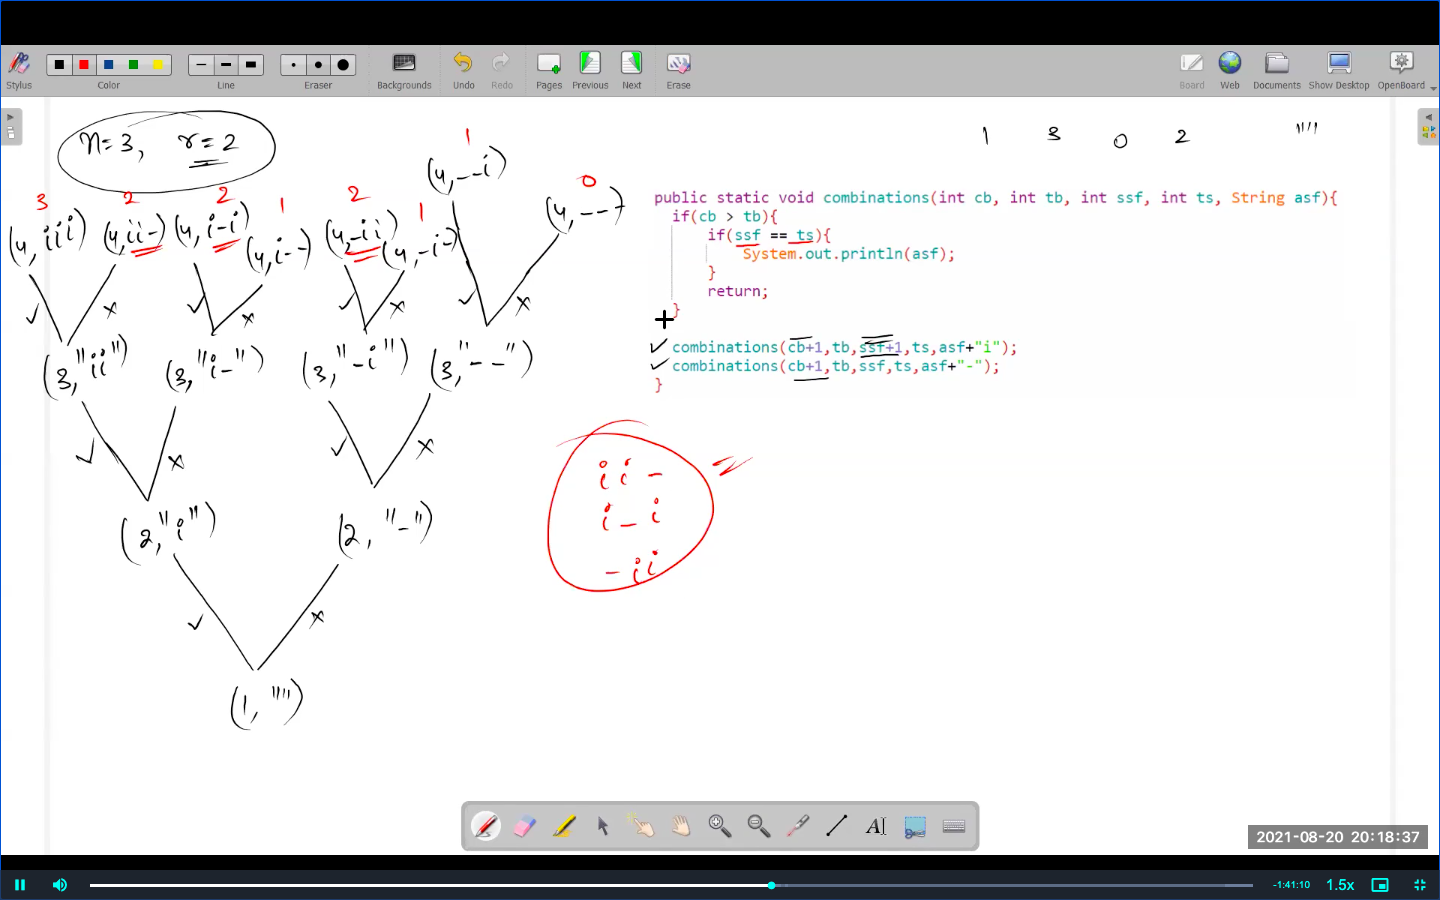 Stylus Color Line Eraser Backgrounds Undo Redo Pages Previous Next Erase Board Web Documents Show Desktop OpenBoard
n=3, r=2
1 3 0 2 ""
1
(4, --i)
3 2 2 1 2 1 0
(4, iii) (4, ii-) (4, i-i) (4, i--) (4, -ii) (4, -i-) (4, --)
public static void combinations(int cb, int tb, int ssf, int ts, String asf){
if(cb > tb){
if(ssf == ts){
System.out.println(asf);
}
return;
}
combinations(cb+1,tb,ssf+1,ts,asf+"i");
combinations(cb+1,tb,ssf,ts,asf+"-");
}
(3, "ii") (3, "i-") (3, "-i") (3, "--")
ii-
i-i
-ii
(2, "i") (2, "-")
(1, "")
2021-08-20 20:18:37
-1:41:10 1.5x